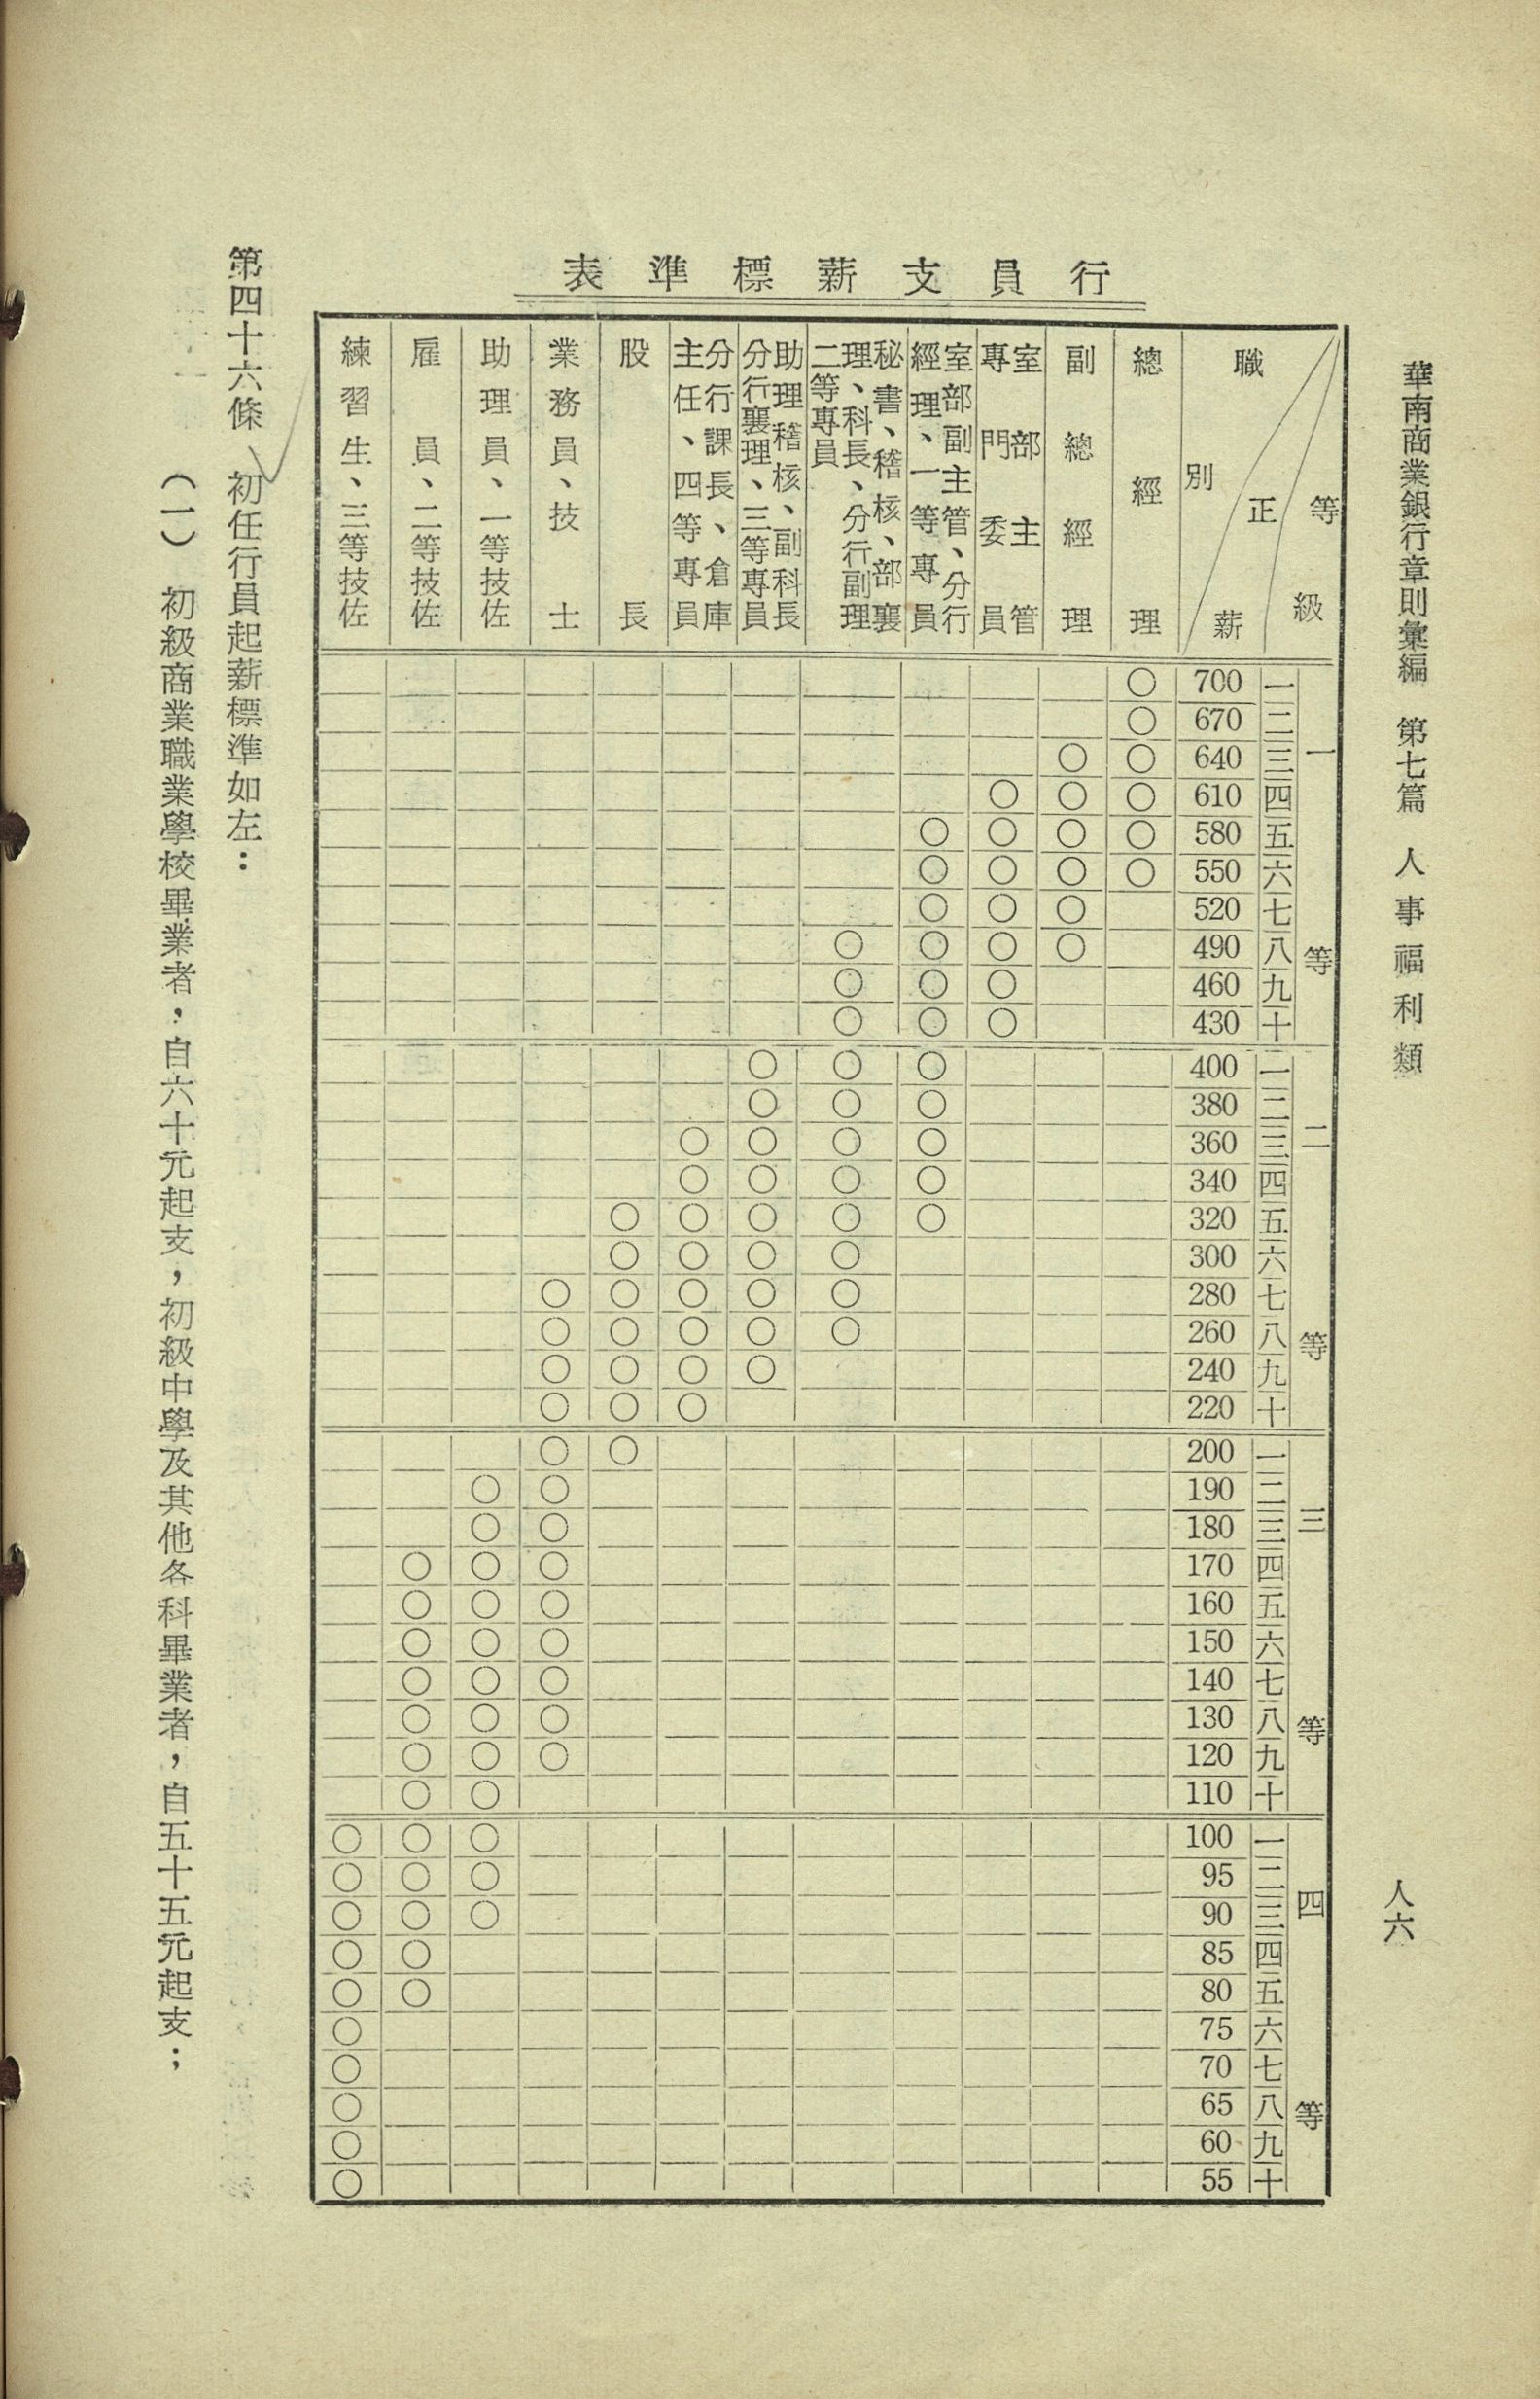 華南商業銀行章則彙編　第七篇　人事福利類
人六
行員支薪標準表
等級
正薪
職別
總經理
副總經理
室部主管
專門委員
室部副主管、分行
經理、一等專員
秘書、稽核、部襄
理、科長、分行副理
二等專員
助理稽核、副科長
分行襄理、三等專員
分行課長、倉庫
主任、四等專員
股長
業務員、技士
助理員、一等技佐
雇員、二等技佐
練習生、三等技佐
一等
一 700 ○
二 670 ○
三 640 ○ ○
四 610 ○ ○ ○
五 580 ○ ○ ○ ○
六 550 ○ ○ ○ ○
七 520 ○ ○ ○
八 490 ○ ○ ○ ○
九 460 ○ ○ ○
十 430 ○ ○ ○
二等
一 400 ○ ○ ○
二 380 ○ ○ ○
三 360 ○ ○ ○ ○
四 340 ○ ○ ○ ○
五 320 ○ ○ ○ ○ ○
六 300 ○ ○ ○ ○
七 280 ○ ○ ○ ○ ○
八 260 ○ ○ ○ ○ ○
九 240 ○ ○ ○ ○
十 220 ○ ○ ○
三等
一 200 ○ ○
二 190 ○ ○
三 180 ○ ○
四 170 ○ ○ ○
五 160 ○ ○ ○
六 150 ○ ○ ○
七 140 ○ ○ ○
八 130 ○ ○ ○
九 120 ○ ○ ○
十 110 ○ ○
四等
一 100 ○ ○ ○
二 95 ○ ○ ○
三 90 ○ ○ ○
四 85 ○ ○
五 80 ○ ○
六 75 ○
七 70 ○
八 65 ○
九 60 ○
十 55 ○
第四十六條、初任行員起薪標準如左：
（一）　初級商業職業學校畢業者，自六十元起支，初級中學及其他各科畢業者，自五十五元起支；